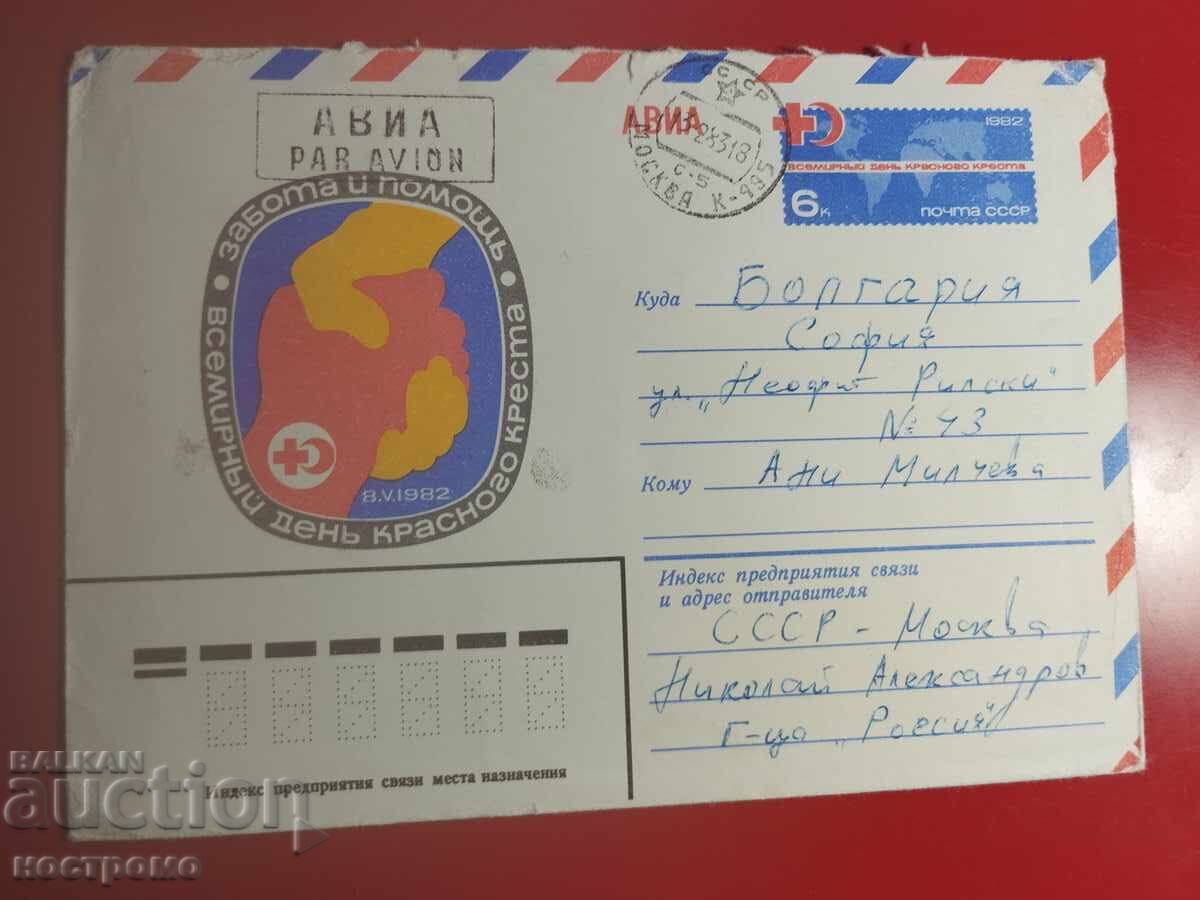 АВИА
PAR AVION
Забота и помощь
Всемирный день Красного Креста
8.V.1982
АВИА
СССР
С-5
МОСКВА К-495
1982
Всемирный день Красного Креста
6к
почта СССР
Куда Болгария
София
ул. „Неофит Рилски“
№ 43
Кому Ани Милчева
Индекс предприятия связи
и адрес отправителя
СССР - Москва
Николай Александров
Г-ца „Россия“
Индекс предприятия связи места назначения
BALKAN
auction
костромо